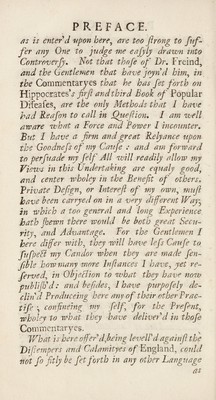 PREFACE.
as is enter'd upon here, are too strong to suf-
fer any One to judge me easyly drawn into
Controversy. Not that those of Dr. Freind,
and the Gentlemen that have joyn'd him, in
the Commentaryes that he has set forth on
Hippocrates's first and third Book of Popular
Diseases, are the only Methods that I have
had Reason to call in Question. I am well
aware what a Force and Power I incounter,
But I have a firm and great Relyance upon
the Goodness of my Cause: and am forward
to persuade my self All will readily allow my
Views in this Undertaking are equaly good,
and center wholey in the Benefit of others.
Private Design, or Interest of my own, must
have been carryed on in a very different Way;
in which a too general and long Experience
hath shewn there would be both great Secu-
rity, and Advantage. For the Gentlemen I
here differ with, they will have less Cause to
suspect my Candor when they are made sen-
sible how many more Instances I have, yet re-
served, in Objection to what they have now
publish'd: and besides, I have purposely de-
clin'd Produceing here any of their other Prac-
tise; confineing my self, for the Present,
wholey to what they have deliver'd in those
Commentaryes.
What is here offer'd, being levell'd against the
Distempers and Calamityes of England, could
not so fitly be set forth in any other Language
as